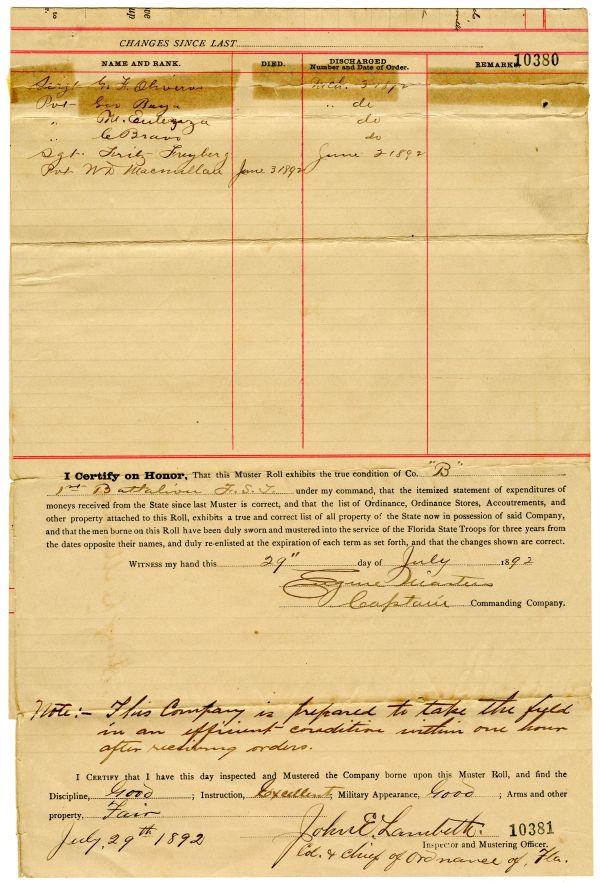 CHANGES SINCE LAST
10380
NAME AND RANK. DIED. DISCHARGED Number and Date of Order. REMARKS.
Sergt G. F. Oliveros Mch. 31 1892
Pvt Geo Baya " do
" M. do
" C Bravo do
Sgt. Fritz Freyberg June 2 1892
Pvt W D Macmillan June 3 1892
I Certify on Honor, That this Muster Roll exhibits the true condition of Co. "B"
1st Battalion F. S. T. under my command, that the itemized statement of expenditures of
moneys received from the State since last Muster is correct, and that the list of Ordinance, Ordinance Stores, Accoutrements, and
other property attached to this Roll, exhibits a true and correct list of all property of the State now in possession of said Company,
and that the men borne on this Roll have been duly sworn and mustered into the service of the Florida State Troops for three years from
the dates opposite their names, and duly re-enlisted at the expiration of each term as set forth, and that the changes shown are correct.
WITNESS my hand this 29" day of July 1892
Eugene Masters
Captain Commanding Company.
Note:- This Company is prepared to take the field
in an efficient condition within one hour
after receiving orders.
I CERTIFY that I have this day inspected and Mustered the Company borne upon this Muster Roll, and find the
Discipline, Good ; Instruction, Excellent, Military Appearance, Good ; Arms and other
property, Fair
July 29th 1892
John E. Lambeth. 10381
Inspector and Mustering Officer.
Col. & Chief of Ordnance of Fla.